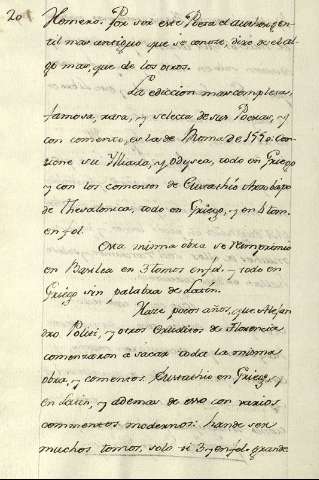 20
Homero. Por ser este Poeta el autor gen-
til mas antiguo que se conose, dire de el al
go mas, que de los otros.
La ediccion mas completa,
famosa, rara, y selecta de sus Poemas, y
con comento, es la de Roma de 1550: con
tiene su Illiada, y Odysea, todo en Griego
y con los comentos de Eustathio Arzobispo
de Thesalonica, todo en Griego, y en 4 tom.
en fol.
Esta misma obra se reimprimio
en Basilea en 3 tomos en fol. y todo en
Griego sin palabra de Latin.
Hace pocos años, que Alejan
dro Politi, y otros Eruditos de Florencia
comenzaron a sacar toda la misma
obra, y comentos Eustathio en Griego, y
en Latin, y ademas de esso con varios
commentos modernos: hande ser
muchos tomos, solo vi 3 y en fol. grande